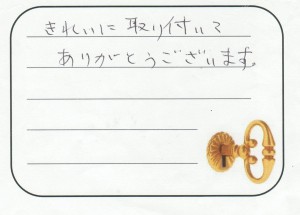 きれいに取り付いて
ありがとうございます。